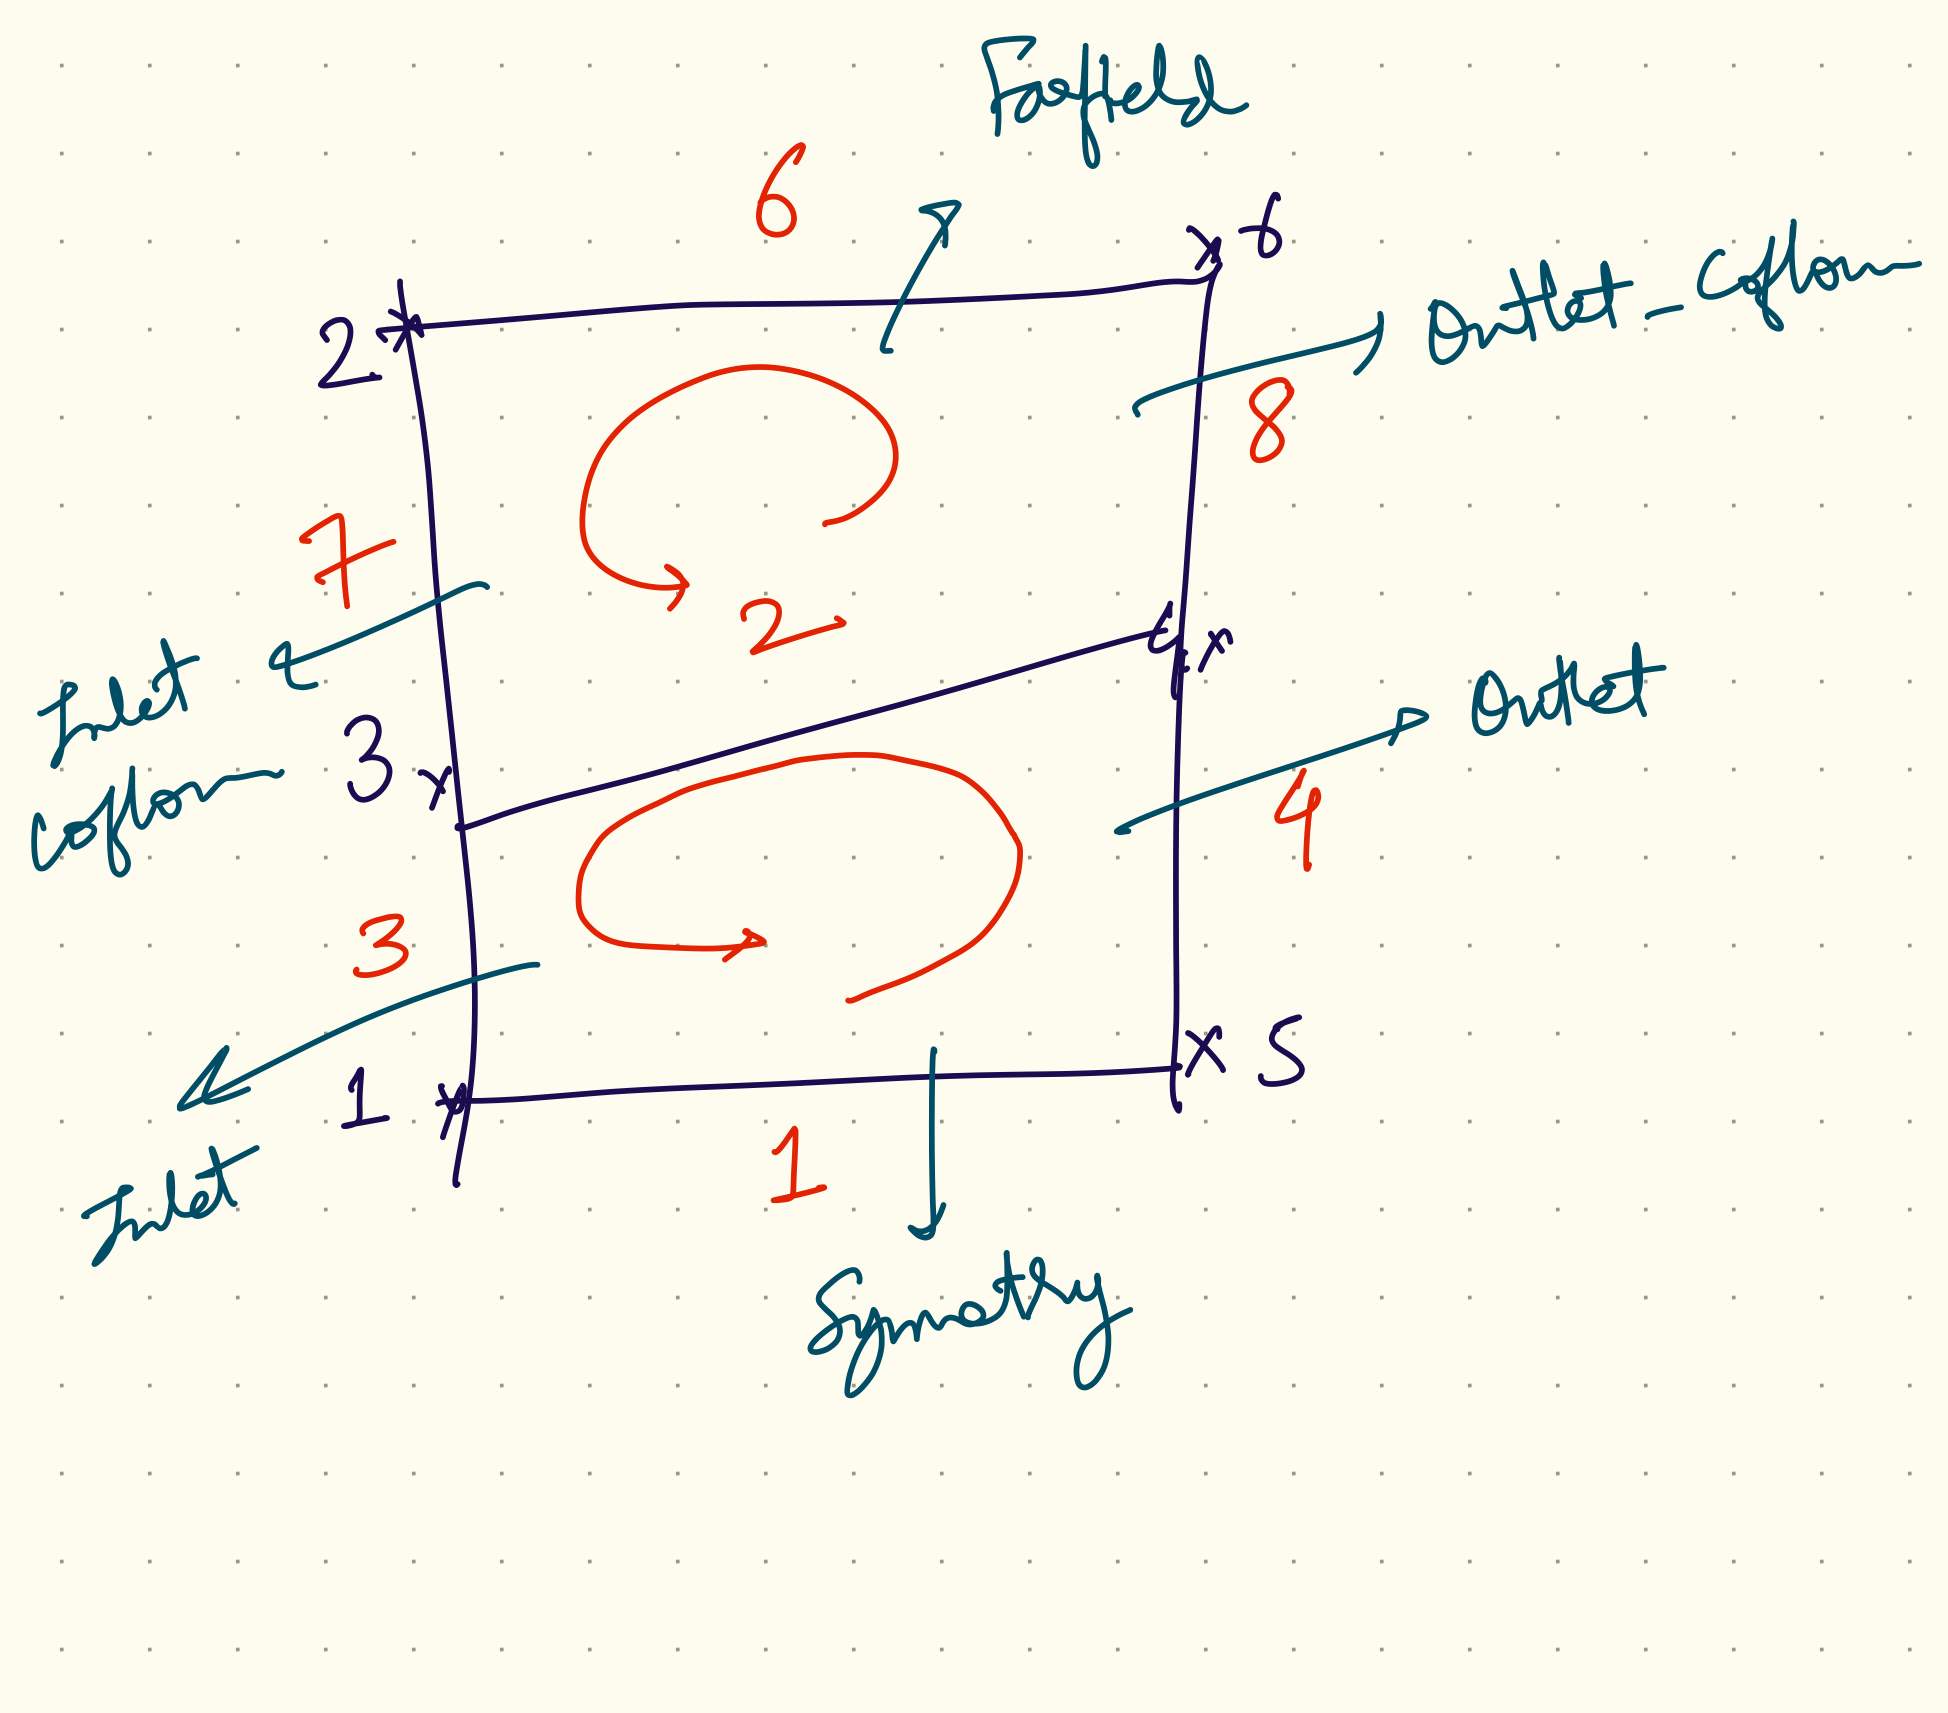 Farfield
6
6
Outlet-Coflow
2
8
7
2
4
Inlet
Coflow
3
Outlet
4
3
1
5
1
Inlet
Symmetry